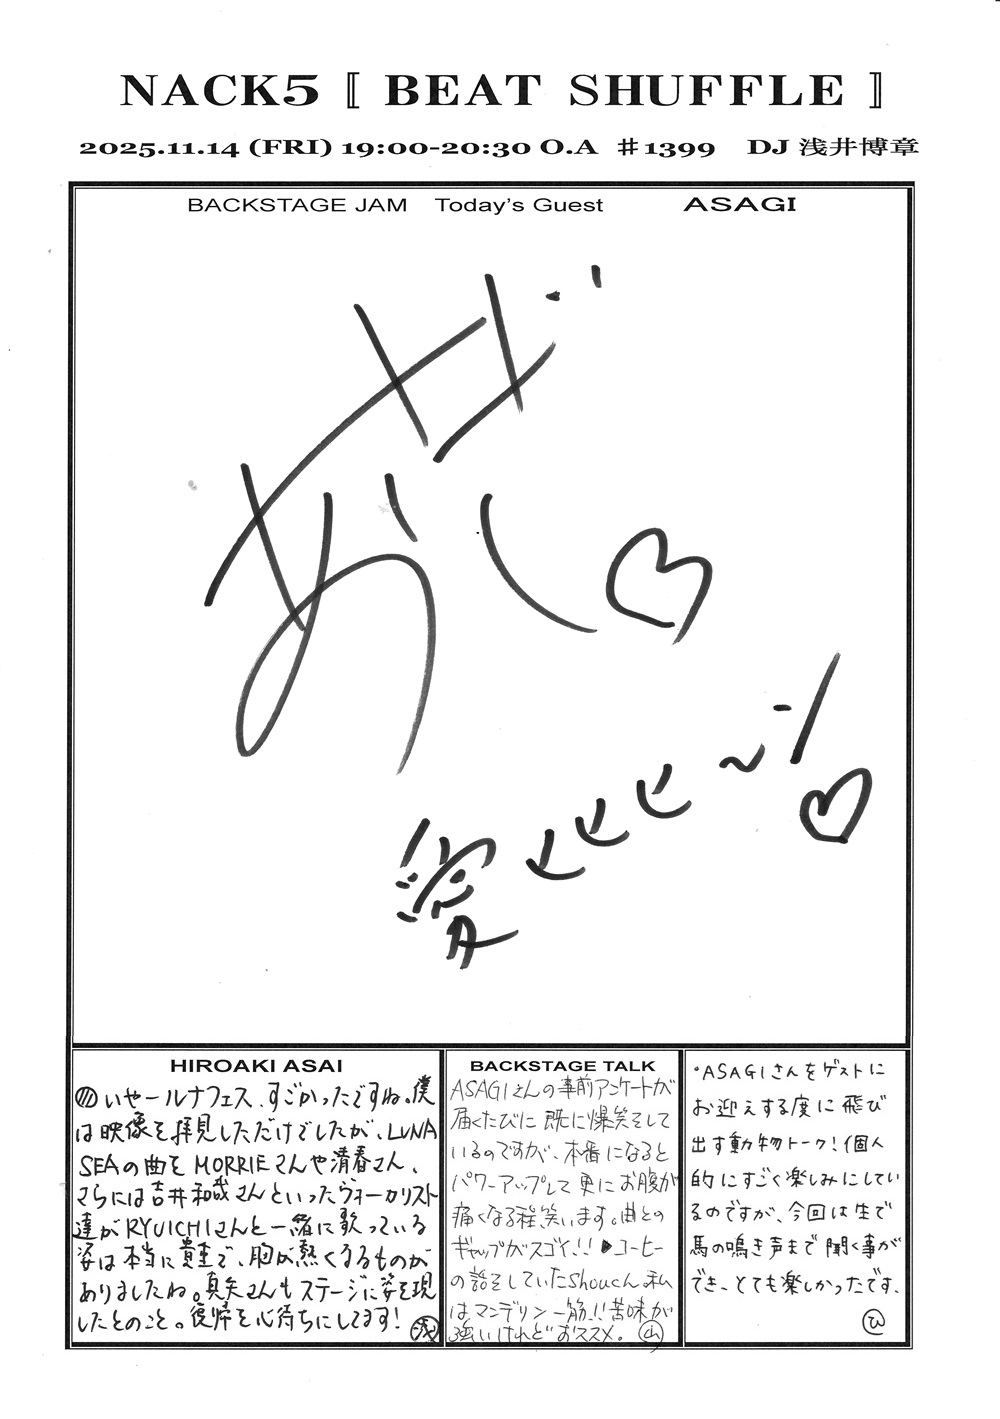 NACK5 〚 BEAT SHUFFLE 〛
2025.11.14 (FRI) 19:00-20:30 O.A ♯1399 DJ 浅井博章
BACKSTAGE JAM Today's Guest ASAGI
あさぎ♡
愛 ヒヒヒ〜ン!♡
HIROAKI ASAI
いやールナフェス、すごかったですね。僕
は映像を拝見しただけでしたが、LUNA
SEAの曲をMORRIEさんや清春さん、
さらには吉井和哉さんといったヴォーカリスト
達がRYUICHIさんと一緒に歌っている
姿は本当に貴重で、胸が熱くなるものが
ありましたね。真矢さんもステージに姿を現
したとのこと。復帰を心待ちにしてます! 浅
BACKSTAGE TALK
ASAGIさんの事前アンケートが
届くたびに既に爆笑をして
いるのですが、本番になると
パワーアップして更にお腹が
痛くなる程笑います。曲との
ギャップがスゴイ!! コーヒー
の話をしていたShouくん、私
はマンデリン一筋!! 苦味が
強いけれどおススメ。山
・ASAGIさんをゲストに
お迎えする度に飛び
出す動物トーク!個人
的にすごく楽しみにしてい
るのですが、今回は生で
馬の鳴き声まで聞く事が
でき、とても楽しかったです。
ひ